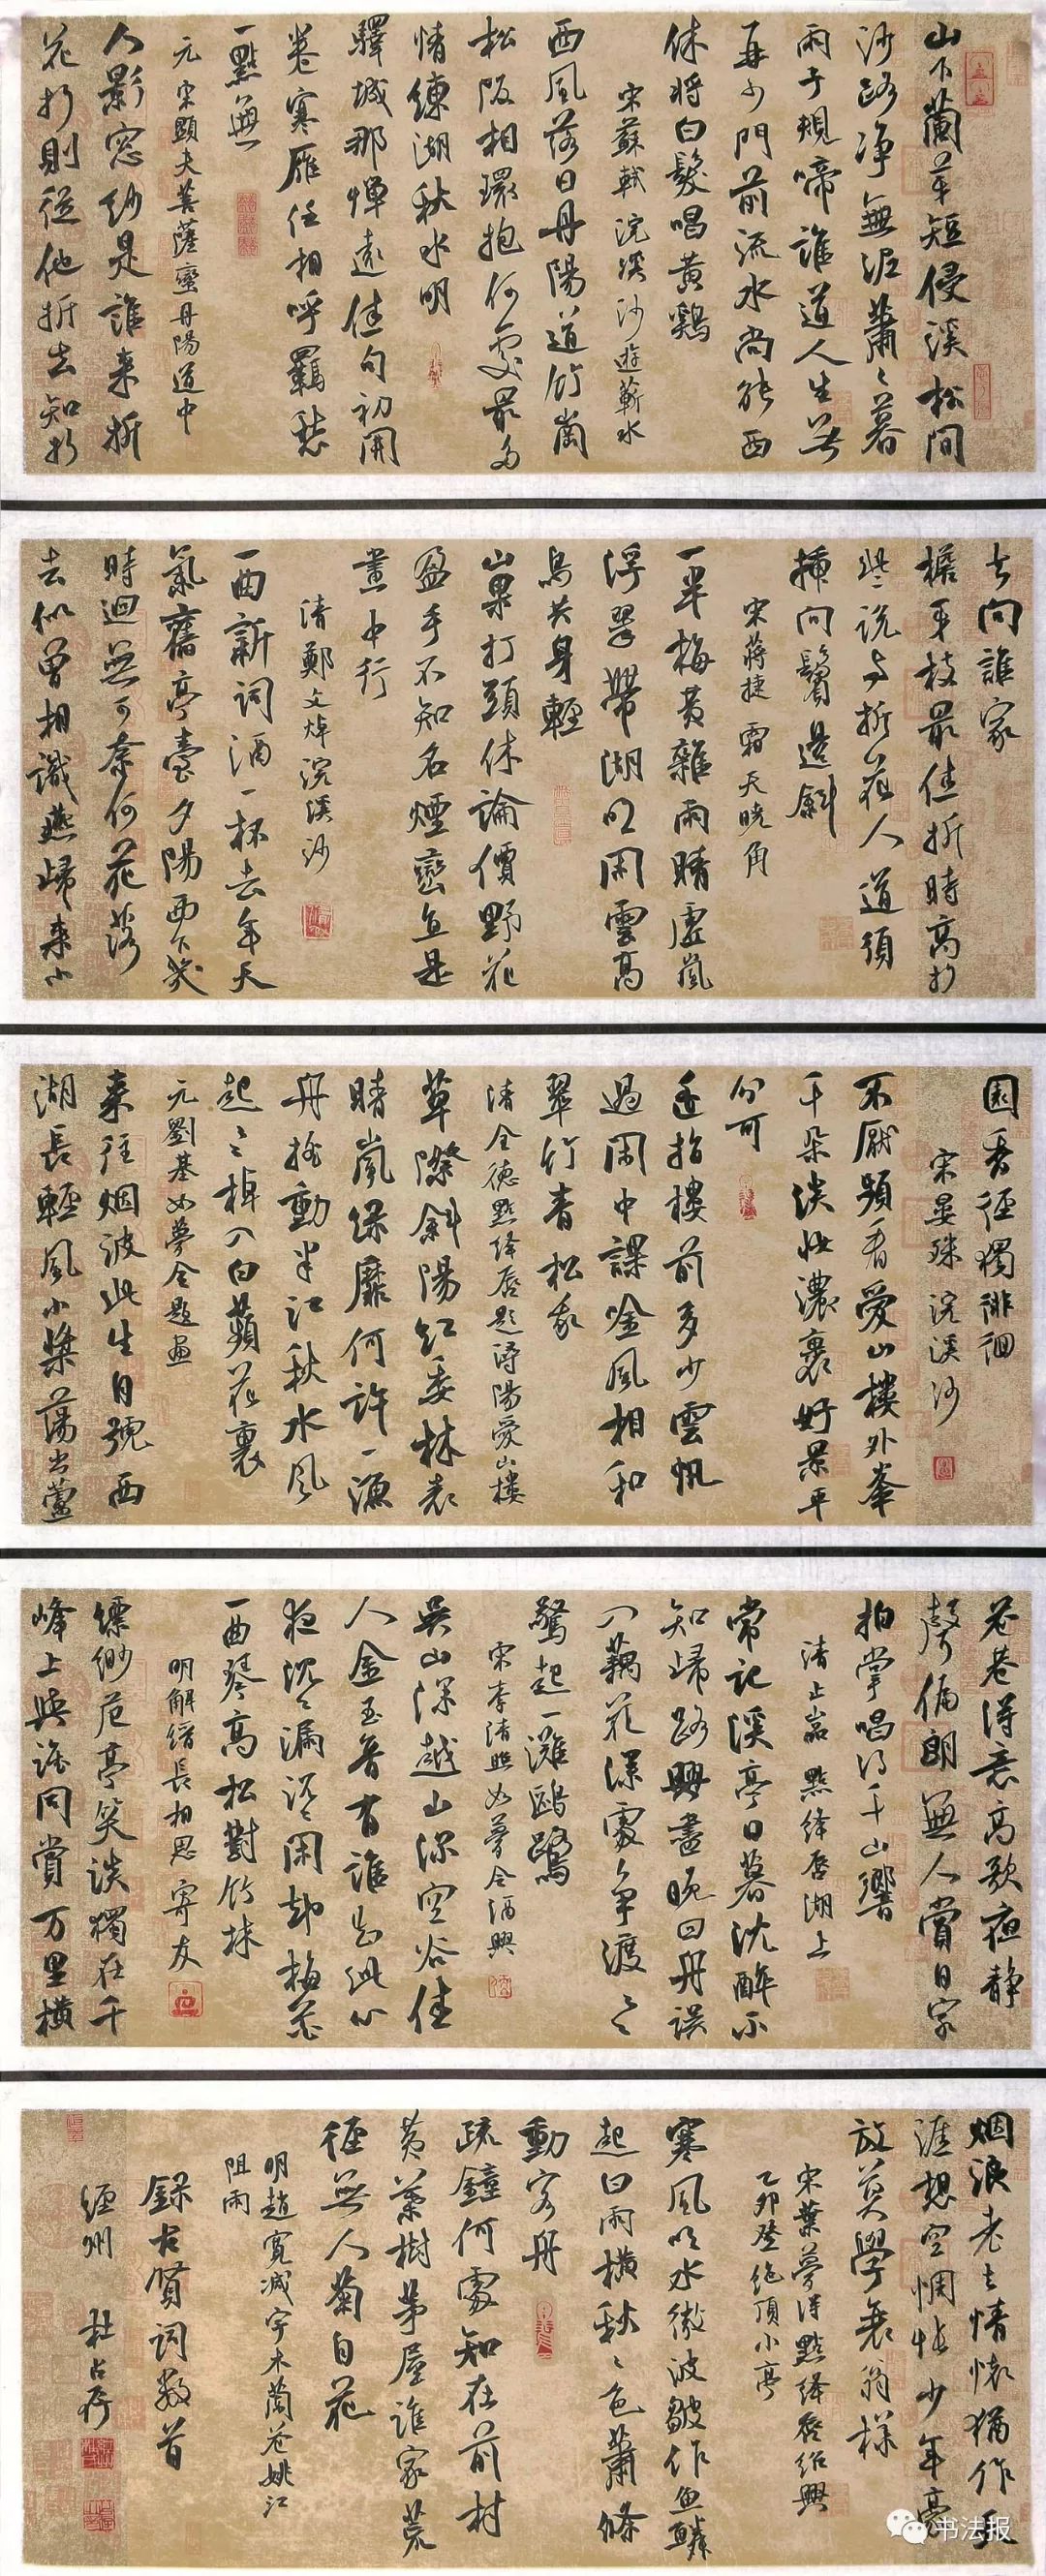 山下蘭芽短侵溪松間
沙路淨無泥蕭〻暮
雨子規啼誰道人生無
再少門前流水尚能西
休將白髮唱黃鷄
宋蘇軾浣溪沙遊蘄水
西風落日丹陽道竹崗
松阪相環抱何處最多
情練湖秋水明
驛城那憚遠佳句初開
卷寒雁任相呼羈愁
一點無
元宋顯夫菩薩蠻丹陽道中
人影窓紗是誰來折
花折則從他折去知折
去向誰家
檐牙枝最佳折時高折
些說與折花人道須
插向鬢邊斜
宋蔣捷霜天曉角
一半梅黃雜雨晴虛嵐
浮翠帶湖明閑雲高
鳥共身輕
山果打頭休論價野花
盈手不知名煙巒直是
畫中行
清鄭文焯浣溪沙
一曲新詞酒一杯去年天
氣舊亭臺夕陽西下幾
時迴無可奈何花落
去似曾相識燕歸來小
園香徑獨徘徊
宋晏殊浣溪沙
不厭頻看愛山樓外峯
千朵淡妝濃裹好景平
分可
近指樓前多少雲帆
過閑中課唫風相和
翠竹青松我
清全德點絳唇題潯陽愛山樓
草際斜陽紅委林表
晴嵐綠靡何許一漁
舟搖動半江秋水風
起〻棹入白蘋花裏
元劉基如夢令題畫
來往烟波此生自號西
湖長輕風小槳蕩出蘆
花港得意高歌夜靜
聲偏朗無人賞自家
拍掌唱得千山響
清上嵓點絳唇湖上
常記溪亭日暮沈醉不
知歸路興盡晚回舟誤
入藕花深處爭渡〻〻
驚起一灘鷗鷺
宋李清照如夢令酒興
吳山深越山深空谷佳
人金玉音有誰知此心
夜沉〻漏沉〻閑却梅花
一曲琴高松對竹林
明解縉長相思寄友
縹緲危亭笑談獨在千
峰上與誰同賞万里橫
烟浪老去情懷猶作天
涯想空惆悵少年豪
放莫學衰翁樣
宋葉夢得點絳唇紹興
乙卯登絶頂小亭
寒風吹水微波皺作魚鱗
起白雨橫秋〻色蕭條
動客舟
疏鐘何處知在前村
黃葉樹茅屋誰家荒
徑無人菊自花
明趙寬減字木蘭花姚江
阻雨
錄古賢詞數首
杜占存
书法报